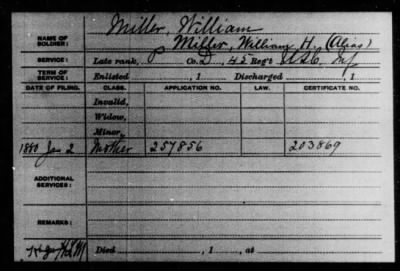 Miller, William
NAME OF SOLDIER: Miller, William H. (Alias)
SERVICE: Late rank, P Co. D, 45 Reg't U.S.C. Inf
TERM OF SERVICE: Enlisted , 1 Discharged , 1
DATE OF FILING. CLASS. APPLICATION NO. LAW. CERTIFICATE NO.
Invalid,
Widow,
Minor,
1880 Jan 2 Mother 257856 203869
ADDITIONAL SERVICES:
REMARKS:
Died , 1 , at